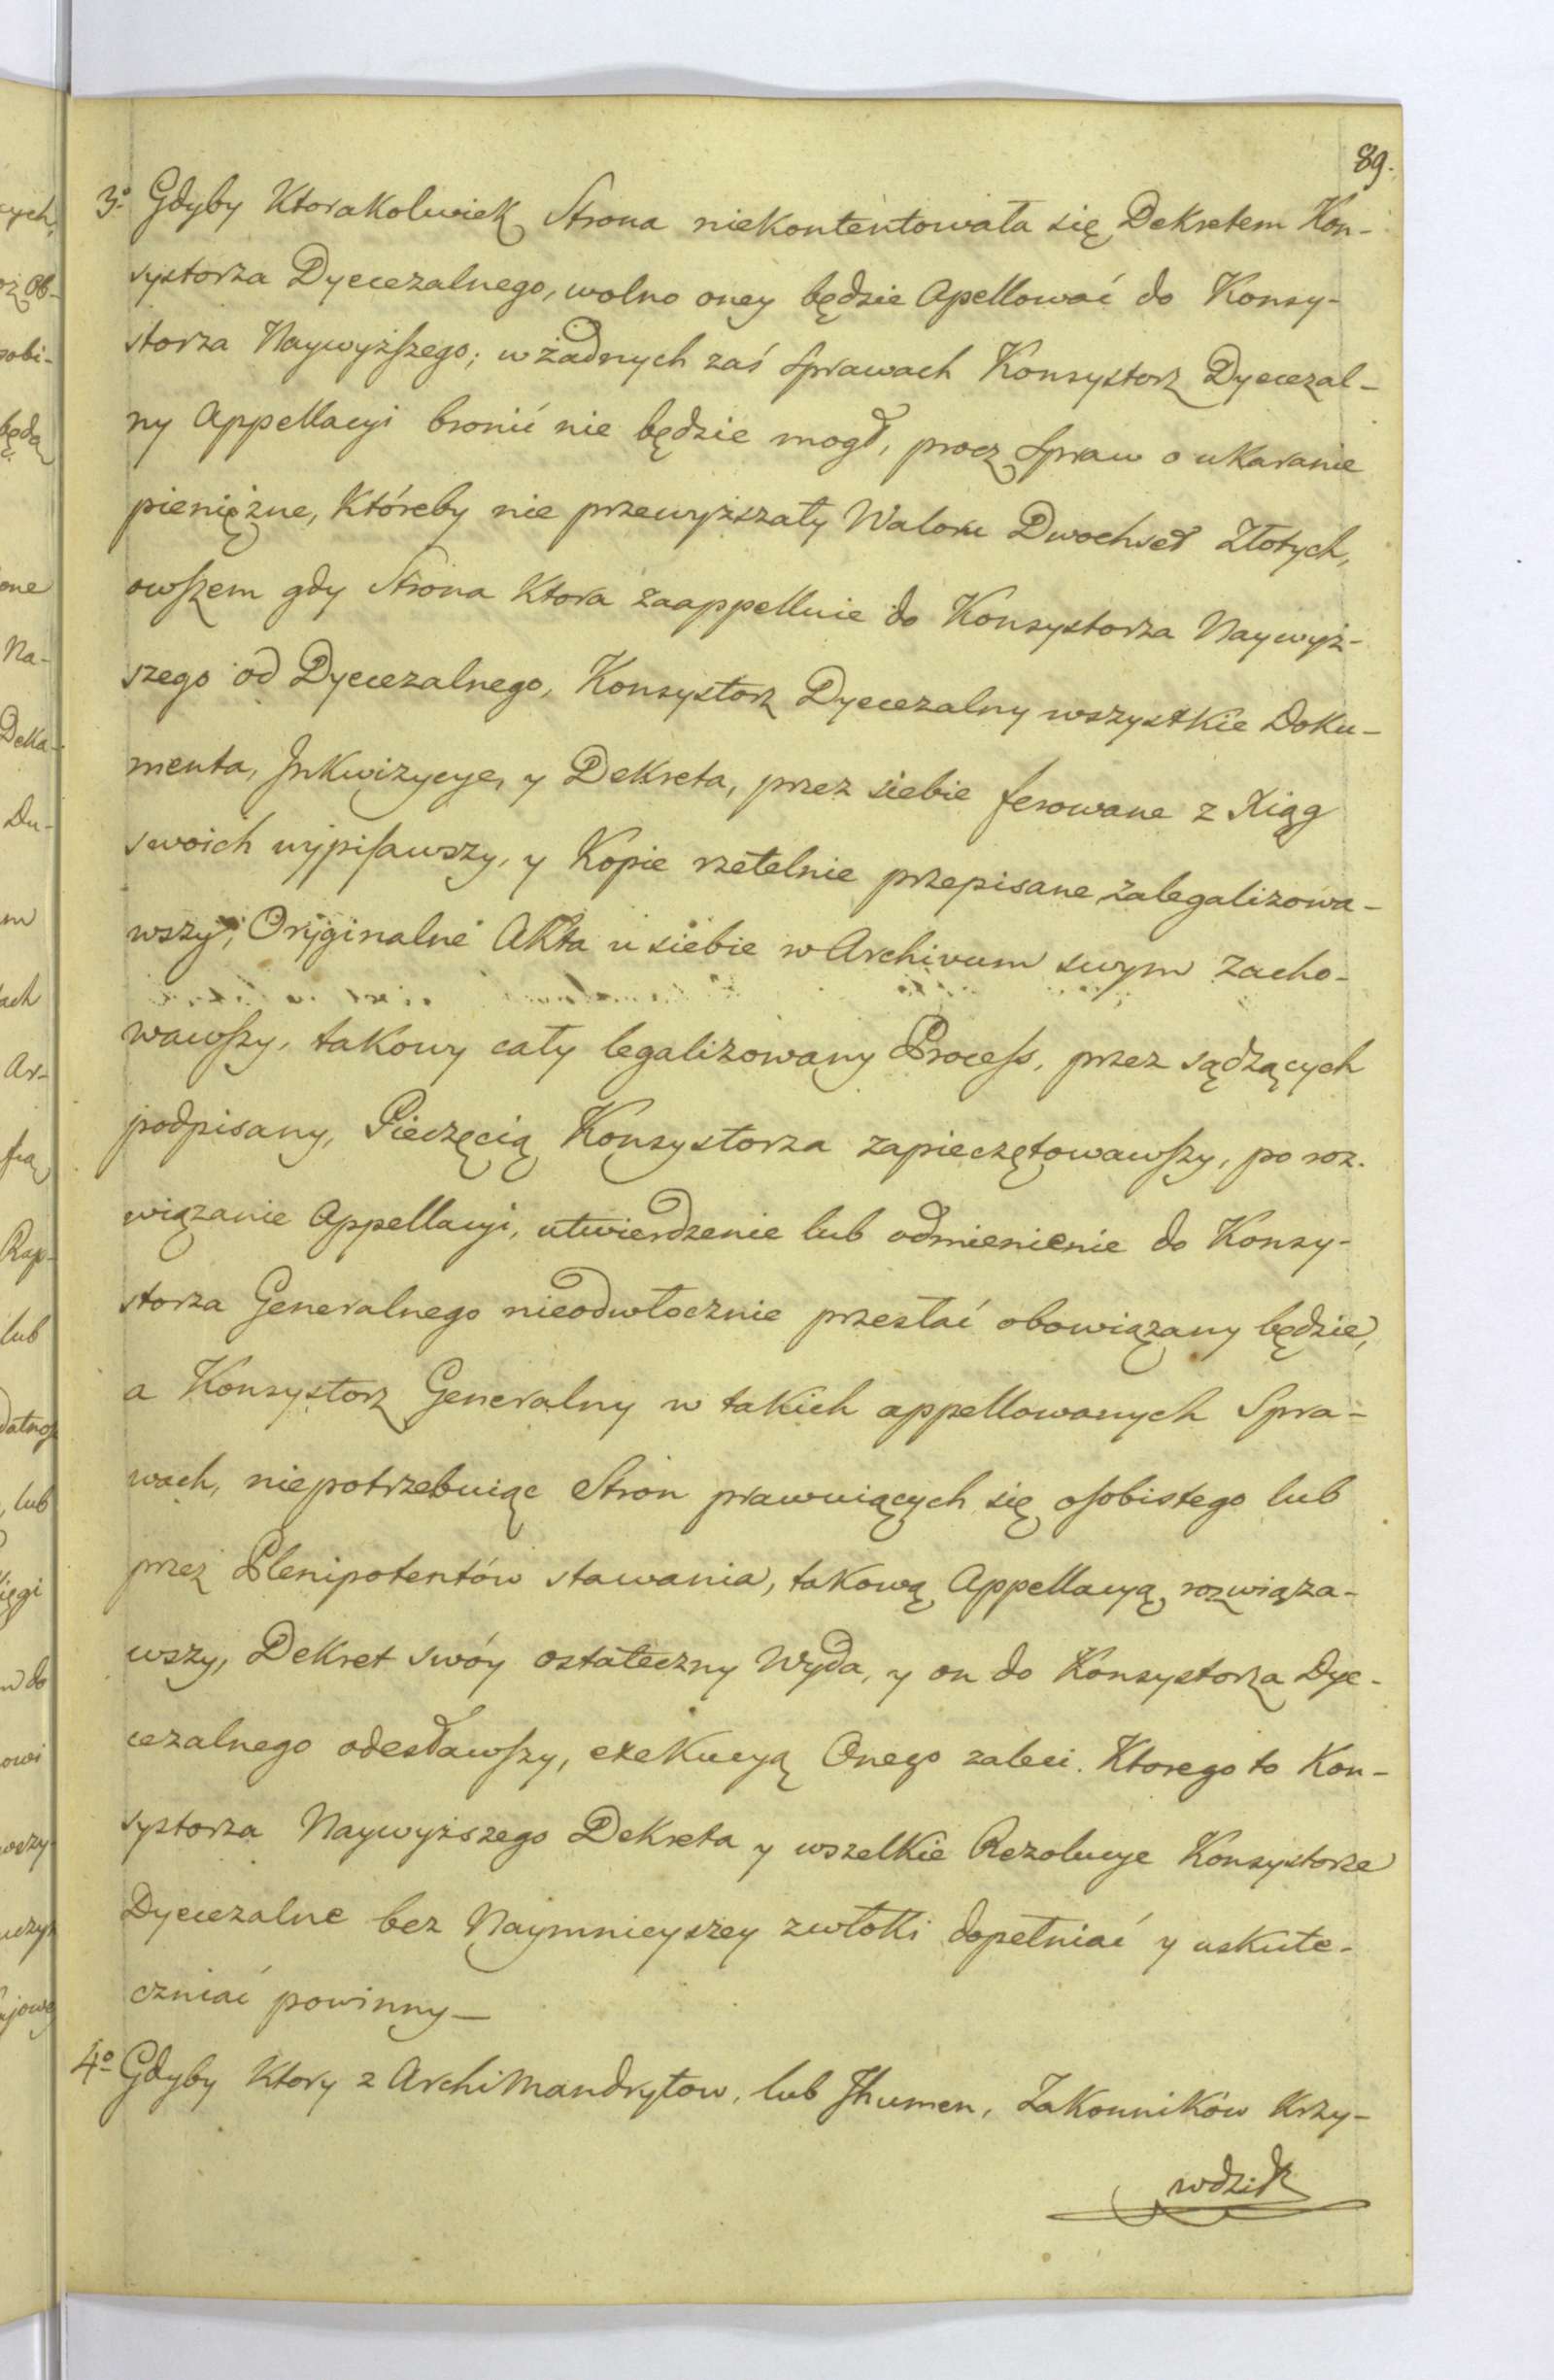 89.
3º Gdyby Ktorakolwiek Strona niekontentowała się Dekretem Kon-
systorza Dyecezalnego, wolno oney będzie Apellować do Konsy-
storza Naywyższego; w żadnych zaś Sprawach Konsystorz Dyecezal-
ny Appellacyi bronić nie będzie mogł, procz Spraw o ukaranie
pieniężne, Któreby nie przewyższały Waloru Dwochset Złotych,
owszem gdy Strona Ktora zaappelluie do Konsystorza Naywyż-
szego od Dyecezalnego, Konsystorz Dyecezalny wszystkie Doku-
menta, Inkwizycye, y Dekreta, przez siebie ferowane z Xiąg
swoich wypisawszy, y Kopie rzetelnie przepisane zalegalizowa-
wszy, Oryginalne Akta u siebie w Archivum swym zacho-
wawszy, takowy cały legalizowany Process, przez sądzących
podpisany, Pieczęcią Konsystorza zapieczętowawszy, po roz-
wiązanie Appellacyi, utwierdzenie lub odmienienie do Konsy-
storza Generalnego nieodwłocznie przesłać obowiązany będzie,
a Konsystorz Generalny w takich appellowanych Spra-
wach, niepotrzebuiąc Stron prawuiących się osobistego lub
przez Plenipotentów stawania, takową Appellacyą rozwiąza-
wszy, Dekret swóy ostateczny Wyda, y on do Konsystorza Dye-
cezalnego odesławszy, exekucyą Onego zaleci. Ktorego to Kon-
systorza Naywyższego Dekreta y wszelkie Rezolucye Konsystorze
Dyecezalne bez Naymnieyszey zwłoki dopełniać y uskute-
czniać powinny—
4º Gdyby Ktory z ArchiMandrytow, lub Jhumen, Zakonników Krzy-
wdził